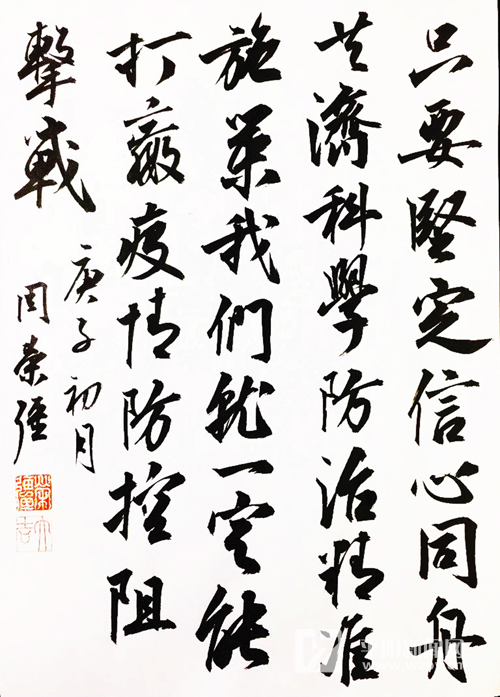 只要堅定信心同舟
共濟科學防治精准
施策我們就一定能
打贏疫情防控阻
擊戰
庚子初月
周榮彊